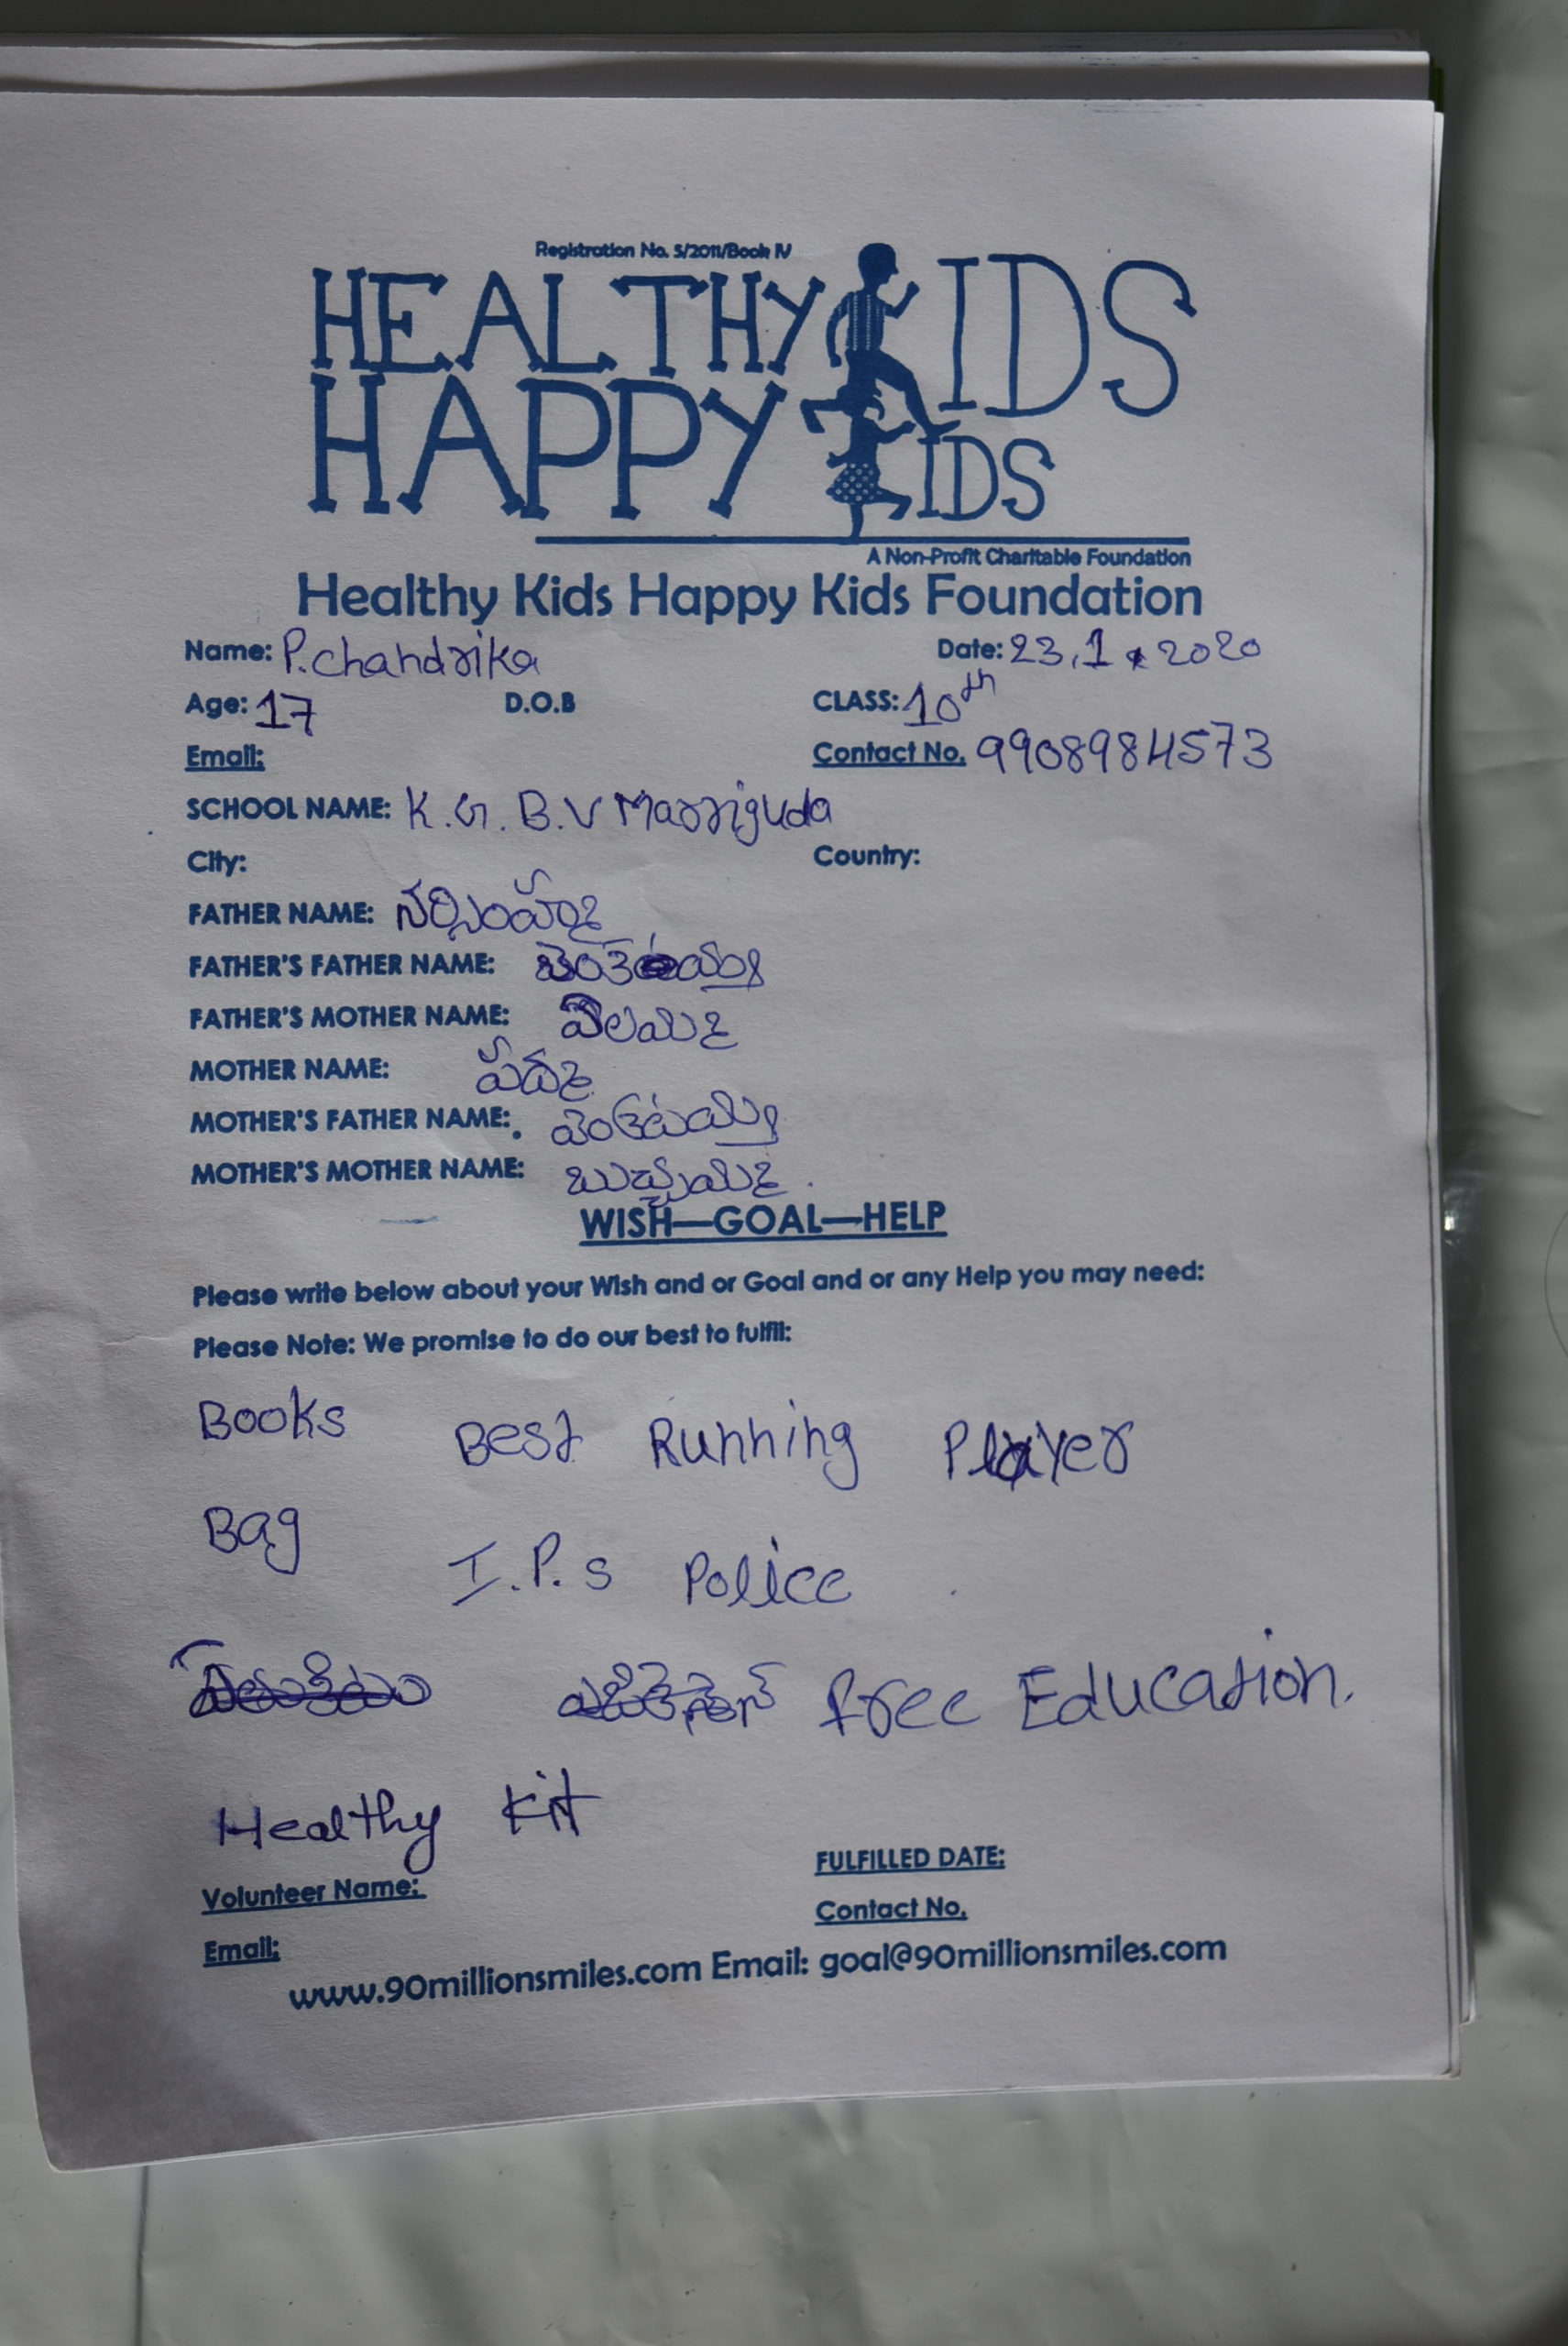 Registration No. 5/2011/Book IV
HEALTHY KIDS
HAPPY KIDS
A Non-Profit Charitable Foundation
Healthy Kids Happy Kids Foundation
Name: P.chandrika Date: 23.1.2020
Age: 17 D.O.B CLASS: 10th
Email: Contact No. 9908984573
SCHOOL NAME: K.G.B.V Marriguda
City: Country:
FATHER NAME: నర్సింహ్మ
FATHER'S FATHER NAME:
FATHER'S MOTHER NAME:
MOTHER NAME: పద్మ
MOTHER'S FATHER NAME: వెంకటయ్య
MOTHER'S MOTHER NAME: బుచ్చమ్మ
WISH—GOAL—HELP
Please write below about your Wish and or Goal and or any Help you may need:
Please Note: We promise to do our best to fulfil:
Books Best Running Player
Bag I.P.S Police
free Education.
Healthy Kit
FULFILLED DATE:
Volunteer Name:
Contact No.
Email:
www.90millionsmiles.com Email: goal@90millionsmiles.com